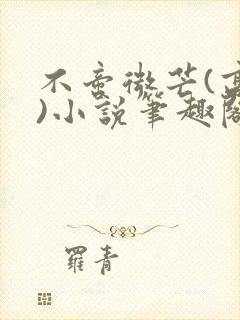 不啻微芒(高
)小說筆趣閣
羅青